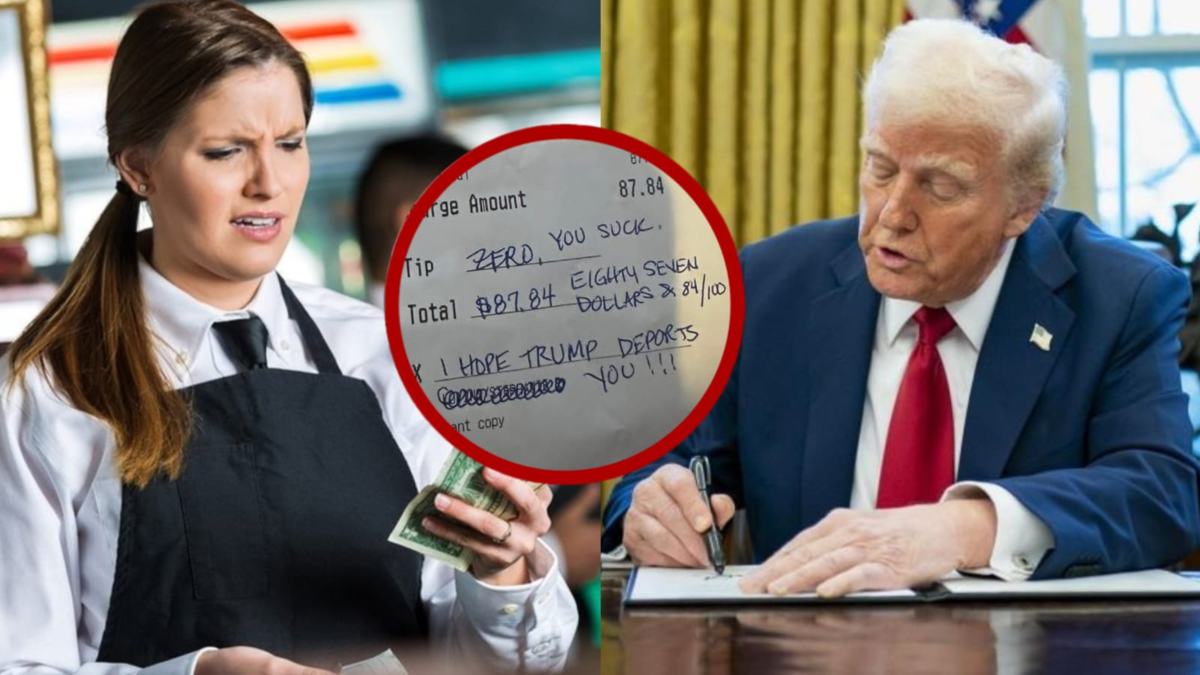 87.84
Charge Amount
Tip ZERO. YOU SUCK.
Total $87.84 EIGHTY SEVEN
DOLLARS & 84/100
X I HOPE TRUMP DEPORTS
YOU!!!
copy